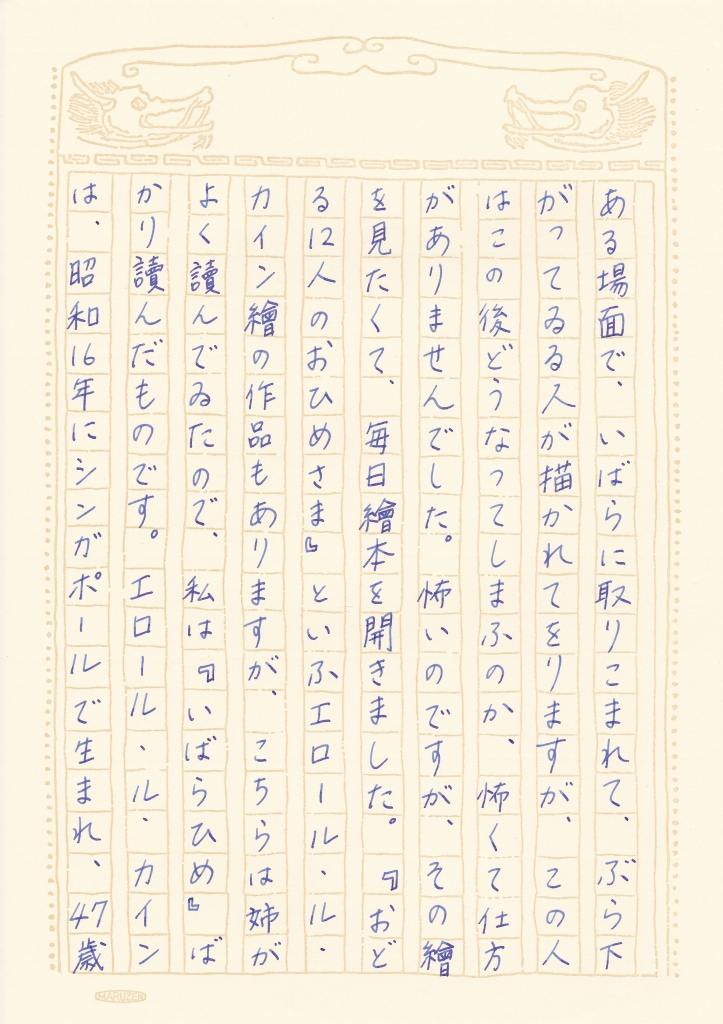 ある場面で、いばらに取りこまれて、ぶら下
がってゐる人が描かれてをりますが、この人
はこの後どうなってしまふのか、怖くて仕方
がありませんでした。怖いのですが、その繪
を見たくて、毎日繪本を開きました。『おど
る12人のおひめさま』といふエロール・ル・
カイン繪の作品もありますが、こちらは姉が
よく讀んでゐたので、私は『いばらひめ』ば
かり讀んだものです。エロール・ル・カイン
は、昭和16年にシンガポールで生まれ、47歳
MARUZEN